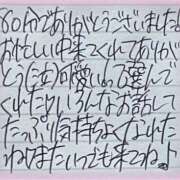 80分でありがとうございました！
お忙しい中来てくれてありが
とう(笑)可愛いの選んで
くれたりいろんなお話して
たっぷり気持ちよくなれた
ねまたいつでも来てね♪